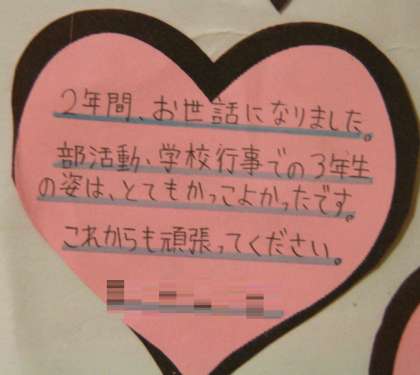 2年間、お世話になりました。
部活動、学校行事での3年生
の姿は、とてもかっこよかったです。
これからも頑張ってください。